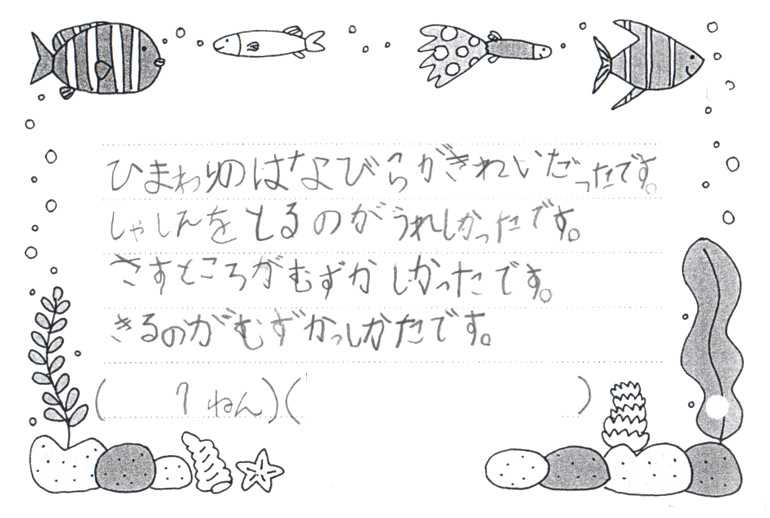 ひまわりのはなびらがきれいだったです。
しゃしんをとるのがうれしかったです。
さすところがむずかしかったです。
きるのがむずかっしかたです。
(1ねん)( )